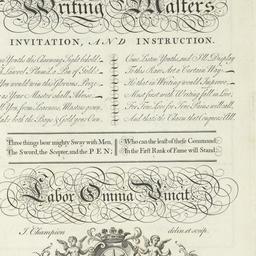 Writing Masters
INVITATION, AND INSTRUCTION.
Youths the Charming Sight behold!
Laurel Plum'd a Pen of Gold:
You would win this Glorious Prize
as Your Master shall Advise
You, from Learned Masters given,
both the Prize & Gold your Own.
Come Listen Youth, and I'll Display
To this Rare Art a Certain Way
He that in Writing would Improve,
Must first with Writing fall in Love;
For True Love for True Pains will call,
And that's the Charm that Conquers All.
Three things bear mighty Sway with Men,
The Sword, the Scepter, and the PEN;
Who can the least of these Command,
In the First Rank of Fame will Stand.
Labor Omnia Vincit.
J. Champion delin et sculp.